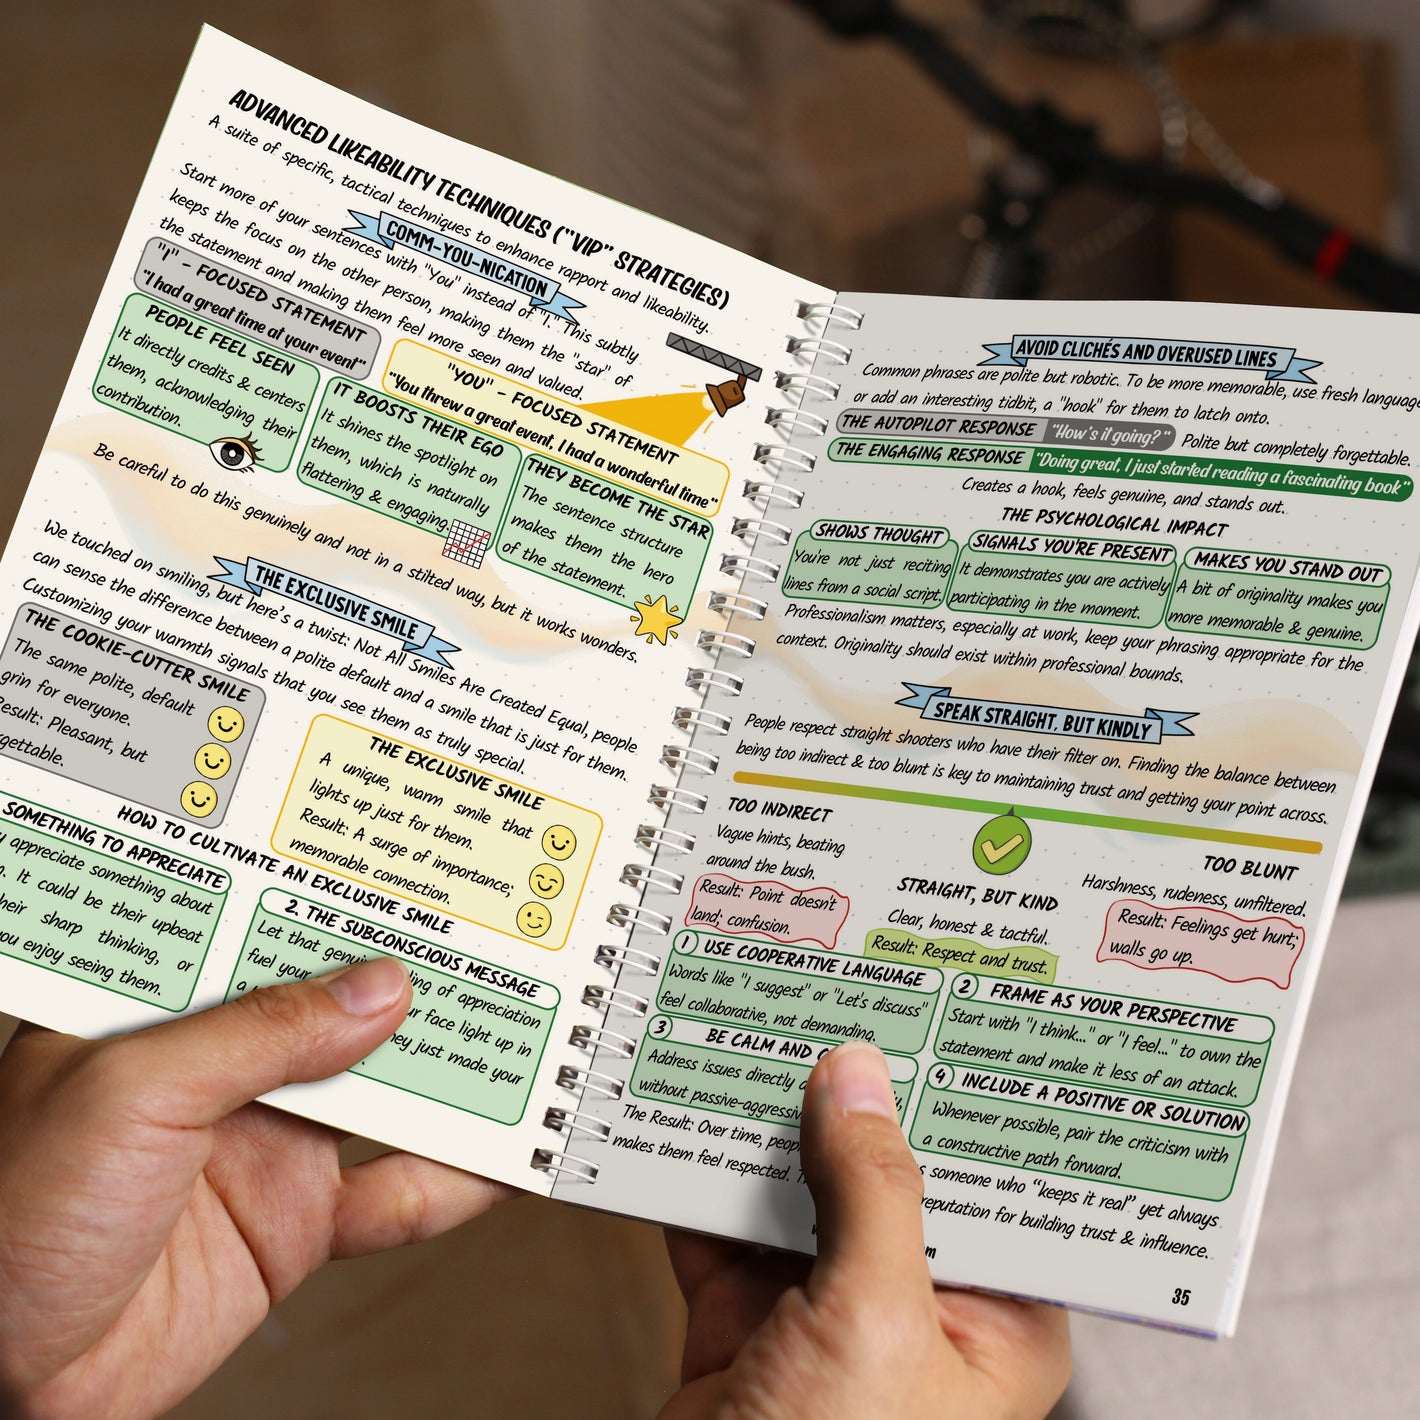 ADVANCED LIKEABILITY TECHNIQUES ("VIP" STRATEGIES)
A suite of specific, tactical techniques to enhance rapport and likeability.
COMM-YOU-NICATION
Start more of your sentences with "You" instead of "I." This subtly
keeps the focus on the other person, making them the "star" of
the statement and making them feel more seen and valued.
"I" - FOCUSED STATEMENT
"I had a great time at your event"
"YOU" - FOCUSED STATEMENT
"You threw a great event, I had a wonderful time"
PEOPLE FEEL SEEN
It directly credits & centers
them, acknowledging their
contribution.
IT BOOSTS THEIR EGO
It shines the spotlight on
them, which is naturally
flattering & engaging.
THEY BECOME THE STAR
The sentence structure
makes them the hero
of the statement.
Be careful to do this genuinely and not in a stilted way, but it works wonders.
THE EXCLUSIVE SMILE
We touched on smiling, but here's a twist: Not All Smiles Are Created Equal, people
can sense the difference between a polite default and a smile that is just for them.
Customizing your warmth signals that you see them as truly special.
THE COOKIE-CUTTER SMILE
The same polite, default
grin for everyone.
Result: Pleasant, but
THE EXCLUSIVE SMILE
A unique, warm smile that
lights up just for them.
Result: A surge of importance;
memorable connection.
HOW TO CULTIVATE AN EXCLUSIVE SMILE
SOMETHING TO APPRECIATE
appreciate something about
It could be their upbeat
their sharp thinking, or
you enjoy seeing them.
2. THE SUBCONSCIOUS MESSAGE
Let that genuine feeling of appreciation
fuel your
your face light up in
they just made your
AVOID CLICHÉS AND OVERUSED LINES
Common phrases are polite but robotic. To be more memorable, use fresh language
or add an interesting tidbit, a "hook" for them to latch onto.
THE AUTOPILOT RESPONSE "How's it going?" Polite but completely forgettable.
THE ENGAGING RESPONSE "Doing great, I just started reading a fascinating book"
Creates a hook, feels genuine, and stands out.
THE PSYCHOLOGICAL IMPACT
SHOWS THOUGHT
You're not just reciting
lines from a social script.
SIGNALS YOU'RE PRESENT
It demonstrates you are actively
participating in the moment.
MAKES YOU STAND OUT
A bit of originality makes you
more memorable & genuine.
Professionalism matters, especially at work, keep your phrasing appropriate for the
context. Originality should exist within professional bounds.
SPEAK STRAIGHT, BUT KINDLY
People respect straight shooters who have their filter on. Finding the balance between
being too indirect & too blunt is key to maintaining trust and getting your point across.
TOO INDIRECT
Vague hints, beating
around the bush.
Result: Point doesn't
land; confusion.
STRAIGHT, BUT KIND
Clear, honest & tactful.
Result: Respect and trust.
TOO BLUNT
Harshness, rudeness, unfiltered.
Result: Feelings get hurt;
walls go up.
1 USE COOPERATIVE LANGUAGE
Words like "I suggest" or "Let's discuss"
feel collaborative, not demanding.
2 FRAME AS YOUR PERSPECTIVE
Start with "I think..." or "I feel..." to own the
statement and make it less of an attack.
3 BE CALM AND
Address issues directly
without passive-aggressive
4 INCLUDE A POSITIVE OR SOLUTION
Whenever possible, pair the criticism with
a constructive path forward.
The Result: Over time, people someone who "keeps it real" yet always
makes them feel respected. reputation for building trust & influence.
35